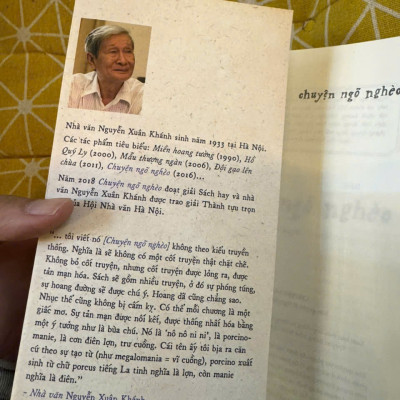 Nhà văn Nguyễn Xuân Khánh sinh năm 1933 tại Hà Nội.
Các tác phẩm tiêu biểu: Miền hoang tưởng (1990), Hồ
Quý Ly (2000), Mẫu thượng ngàn (2006), Đội gạo lên
chùa (2011), Chuyện ngõ nghèo (2016)...
Năm 2018 Chuyện ngõ nghèo đoạt giải Sách hay và nhà
văn Nguyễn Xuân Khánh được trao giải Thành tựu trọn
của Hội Nhà văn Hà Nội.
"... tôi viết nó [Chuyện ngõ nghèo] không theo kiểu truyền
thống. Nghĩa là sẽ không có một cốt truyện thật chặt chẽ.
Không bỏ cốt truyện, nhưng cốt truyện được lỏng ra, được
tản mạn hóa. Sách sẽ gồm nhiều truyện, ở đó sự phóng túng,
sự hoang đường sẽ được chú ý. Hoang dã cũng chẳng sao.
Nhục thể cũng không bị cấm kỵ. Có thể mỗi chương là một
giấc mơ. Sự tản mạn được nối kết, được thống nhất hóa bằng
một ý tưởng như là bùa chú. Nó là 'nô nô ni ni', là porcino-
manie, là cơn điên lợn, trư cuồng. Cái tên ấy tôi bịa ra căn
cứ theo sự tạo từ (như megalomania = vĩ cuồng), porcino xuất
sinh từ chữ porcus tiếng La tinh nghĩa là lợn, còn manie
nghĩa là điên."
- Nhà văn Nguyễn Xuân Khánh
chuyện ngõ nghèo